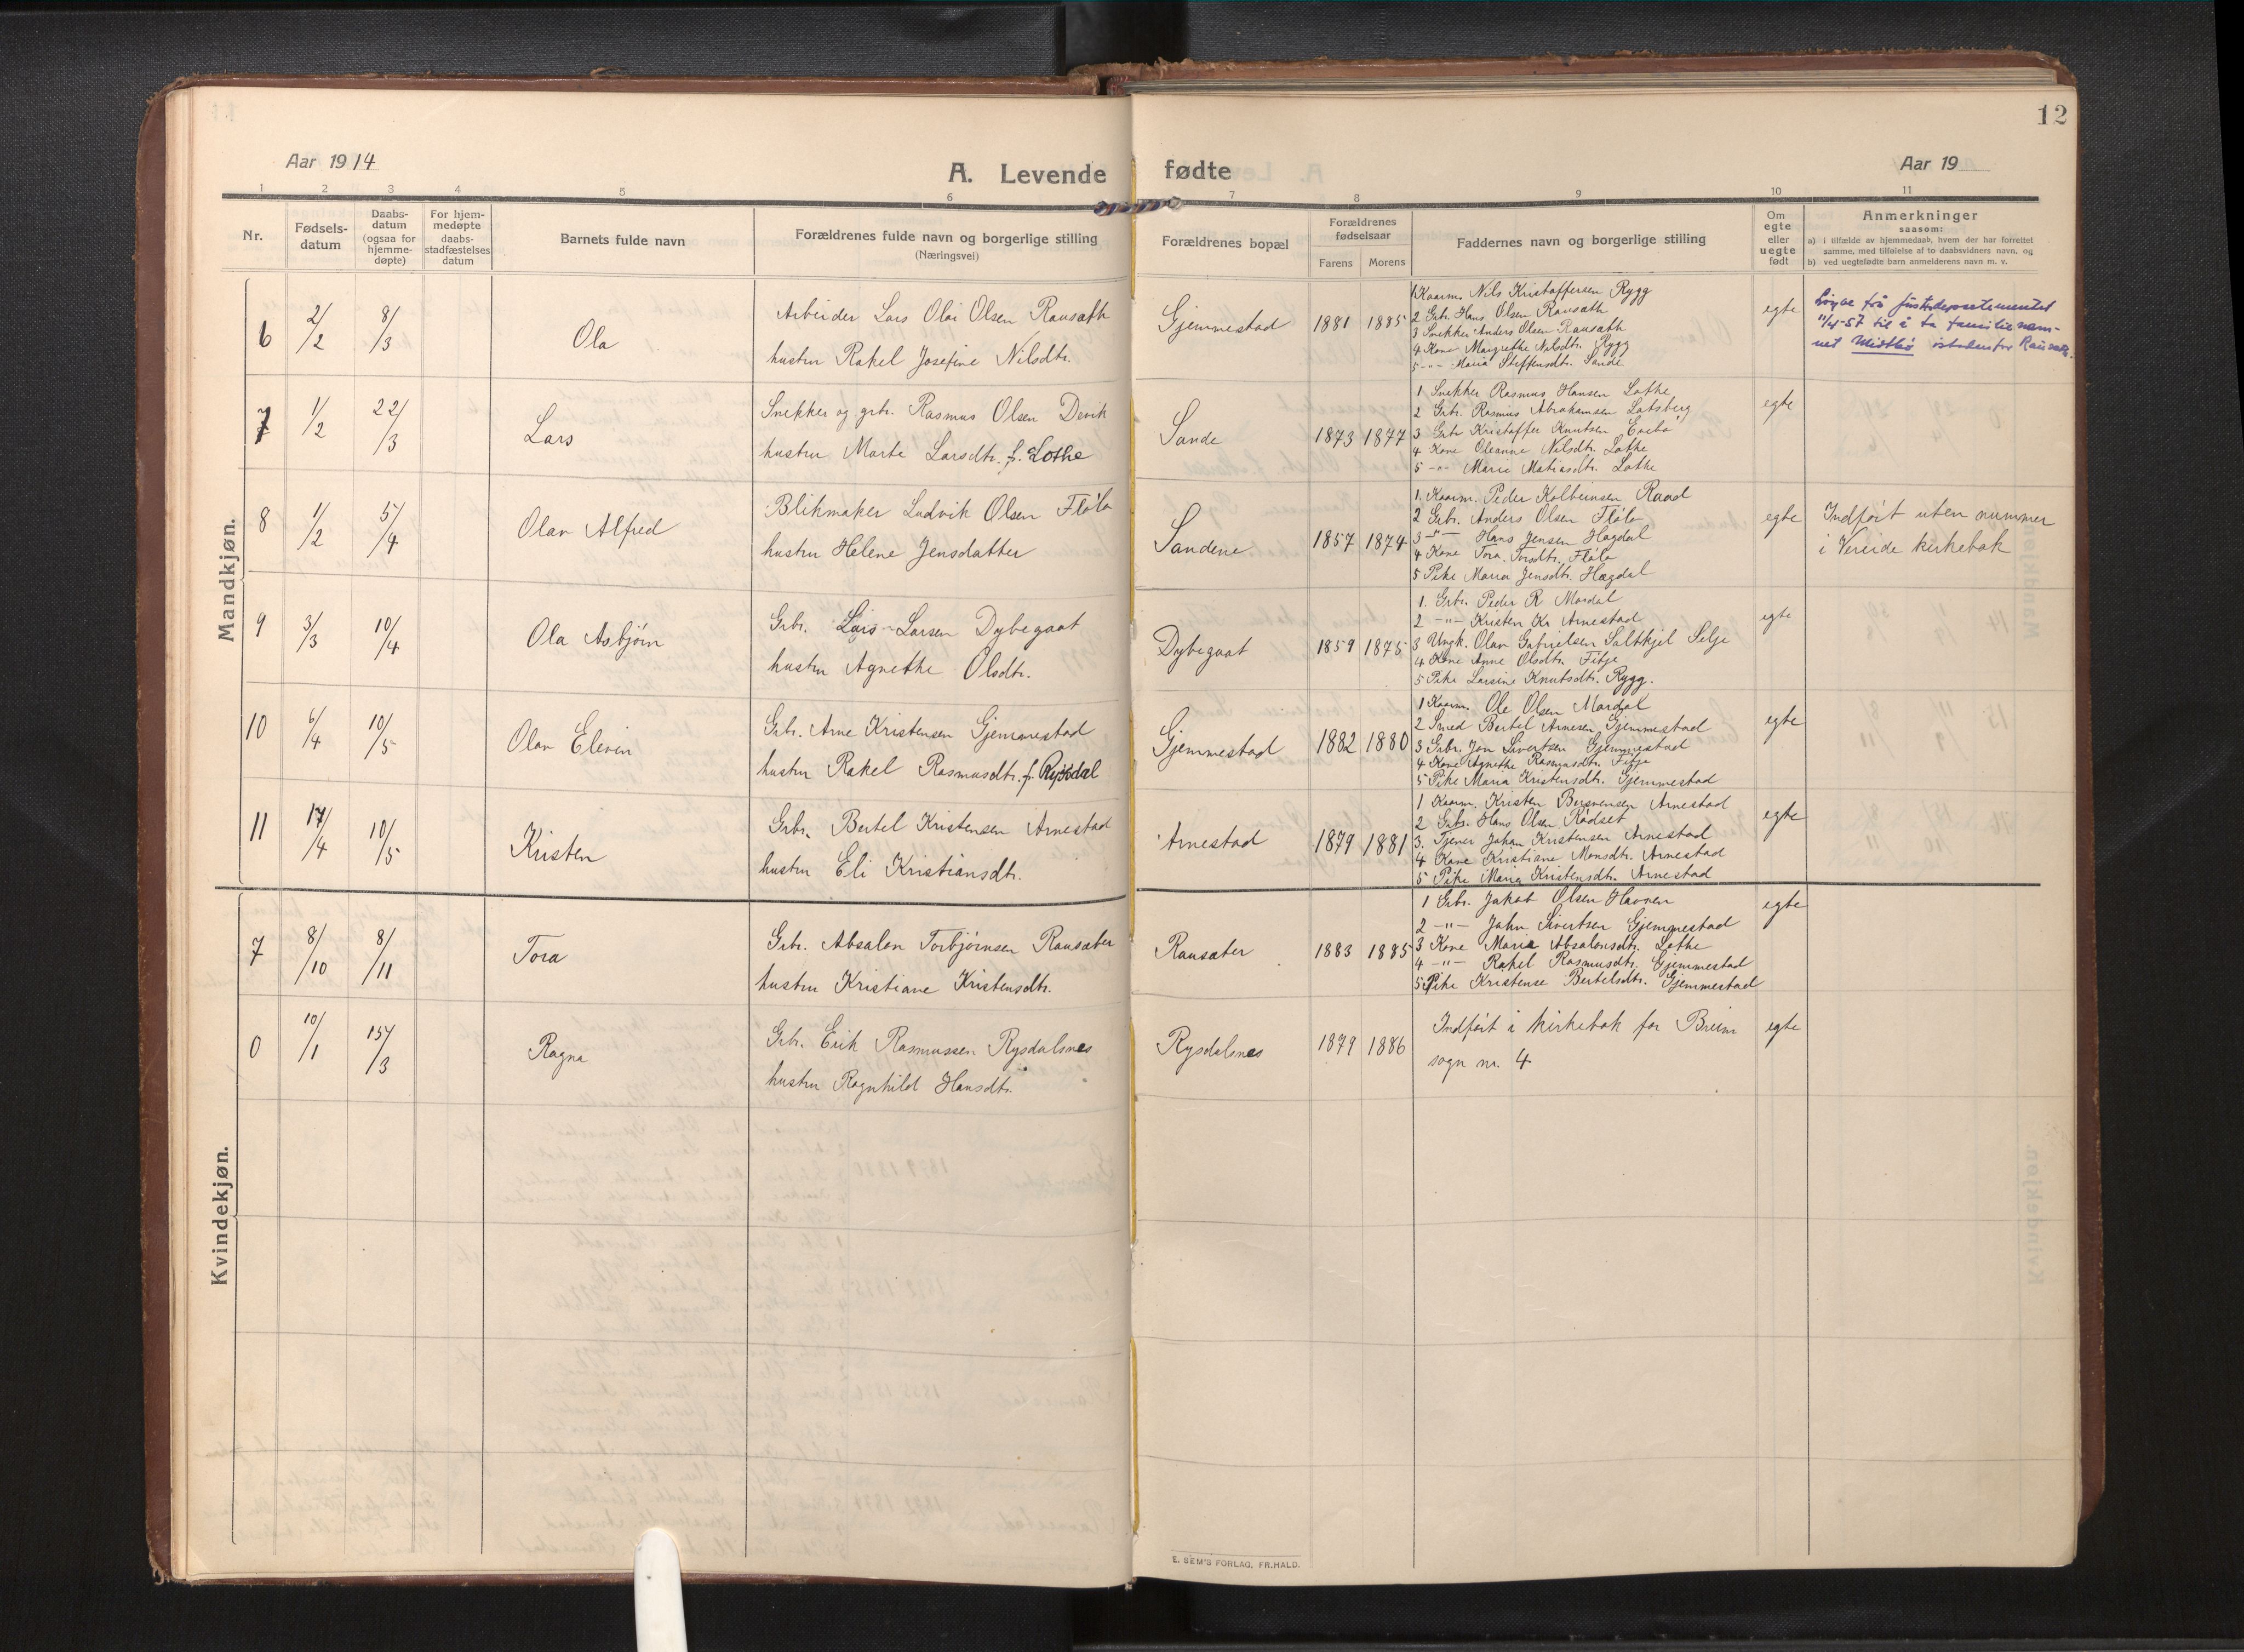 12
Aar 1914
A. Levende fødte
Aar 19
1 2 3 4 5 6 7 8 9 10 11
Nr.
Fødsels-
datum
Daabs-
datum
(ogsaa for
hjemme-
døpte)
For hjem-
medøpte
daabs-
stadfæstelses
datum
Barnets fulde navn
Forældrenes fulde navn og borgerlige stilling
(Næringsvei)
Forældrenes bopæl
Forældrenes
fødselsaar
Farens Morens
Faddernes navn og borgerlige stilling
Om
egte
eller
uegte
født
Anmerkninger
saasom:
a) i tilfælde av hjemmedaab, hvem der har forrettet
samme, med tilføielse af to daabsvidners navn, og
b) ved uegtefødte barn anmelderens navn m. v.
Mandkjøn.
6 2/2 8/3 Ola
Arbeider Lars Olai Olsen Rausæth
hustru Rakel Josefine Nilsdtr.
Gjemmestad 1881 1885
1 Kaarm. Nils Kristoffersen Rygg
2 Grbr. Hans Olsen Rausæth
3 Snekker Anders Olsen Rausæth
4 Kone Margrethe Nilsdtr. Rygg
5 -"- Maria Steffensdtr. Sande
egte
Løyve frå justisdepartementet
11/4-57 til å ta familienam-
net Midtbø istadenfor Rausæt.
7 1/2 22/3 Lars
Snekker og grbr. Rasmus Olsen Devik
hustru Marte Larsdtr. f. Lothe
Sande 1873 1877
1 Snekker Rasmus Hansen Lothe
2 Grbr. Rasmus Abrahamsen Lotsberg
3 Grbr Kristoffer Knutsen Evebø
4 Kone Oleanne Nilsdtr. Lothe
5 -"- Marie Matiasdtr. Lothe
egte
8 1/2 5/4 Olav Alfred
Blikmaker Ludvik Olsen Fløla
hustru Helene Jensdatter
Sandene 1857 1874
1. Kaarm. Peder Kolbeinsen Raad
2 Grbr. Anders Olsen Fløla
3 -"- Hans Jensen Hagdal
4 Kone Tora Torsdtr. Fløla
5 Pike Maria Jensdtr. Hagdal
egte
Indført uten nummer
i Vereide kirkebok
9 3/3 10/4 Ola Asbjørn
Grbr. Lars Larsen Dybegaat
hustru Agnethe Olsdtr.
Dybegaat 1859 1875
1. Grbr. Peder R Mardal
2 -"- Kristen Kr Arnestad
3 Ungk. Olav Gabrielsen Saltkjel Selje
4 Kone Anne Olsdtr. Fitje
5 Pike Larsine Knutsdtr. Rygg.
egte
10 6/4 10/5 Olav Eleven
Grbr. Arne Kristensen Gjemmestad
hustru Rakel Rasmusdtr. f. Rysdal
Gjemmestad 1882 1880
1 Kaarm. Ole Olsen Mardal
2 Smed Bertel Arnesen Gjemmestad
3 Grbr. Jon Sivertsen Gjemmestad
4 Kone Agnethe Rasmusdtr. Fitje
5 Pike Maria Kristensdtr. Gjemmestad
egte
11 17/4 10/5 Kristen
Grbr. Bertel Kristensen Arnestad
hustru Eli Kristiansdtr.
Arnestad 1879 1881
1 Kaarm. Kristen Arnestad
2 Grbr. Hans Olsen Rødset
3. Tjener Johan Kristensen Arnestad
4 Kone Kristiane Monsdtr. Arnestad
5 Pike Maria Kristensdtr. Arnestad
egte
Kvindekjøn.
7 8/10 8/11 Tora
Grbr. Absalon Torbjørnsen Rausæter
hustru Kristiane Kristensdtr.
Rausæter 1883 1885
1 Grbr. Jakob Olsen Havnen
2 -"- John Sivertsen Gjemmestad
3 Kone Maria Absalonsdtr. Lothe
4 -"- Rakel Rasmusdtr. Gjemmestad
5 Pike Kristense Bertelsdtr. Gjemmestad
egte
0 10/1 15/3 Ragna
Grbr. Erik Rasmussen Rysdalsnes
hustru Ragnhild Hansdtr.
Rysdalsnes 1879 1886
Indført i kirkebok for Breim
sogn nr. 4
egte
E. SEM'S FORLAG, FR.HALD.